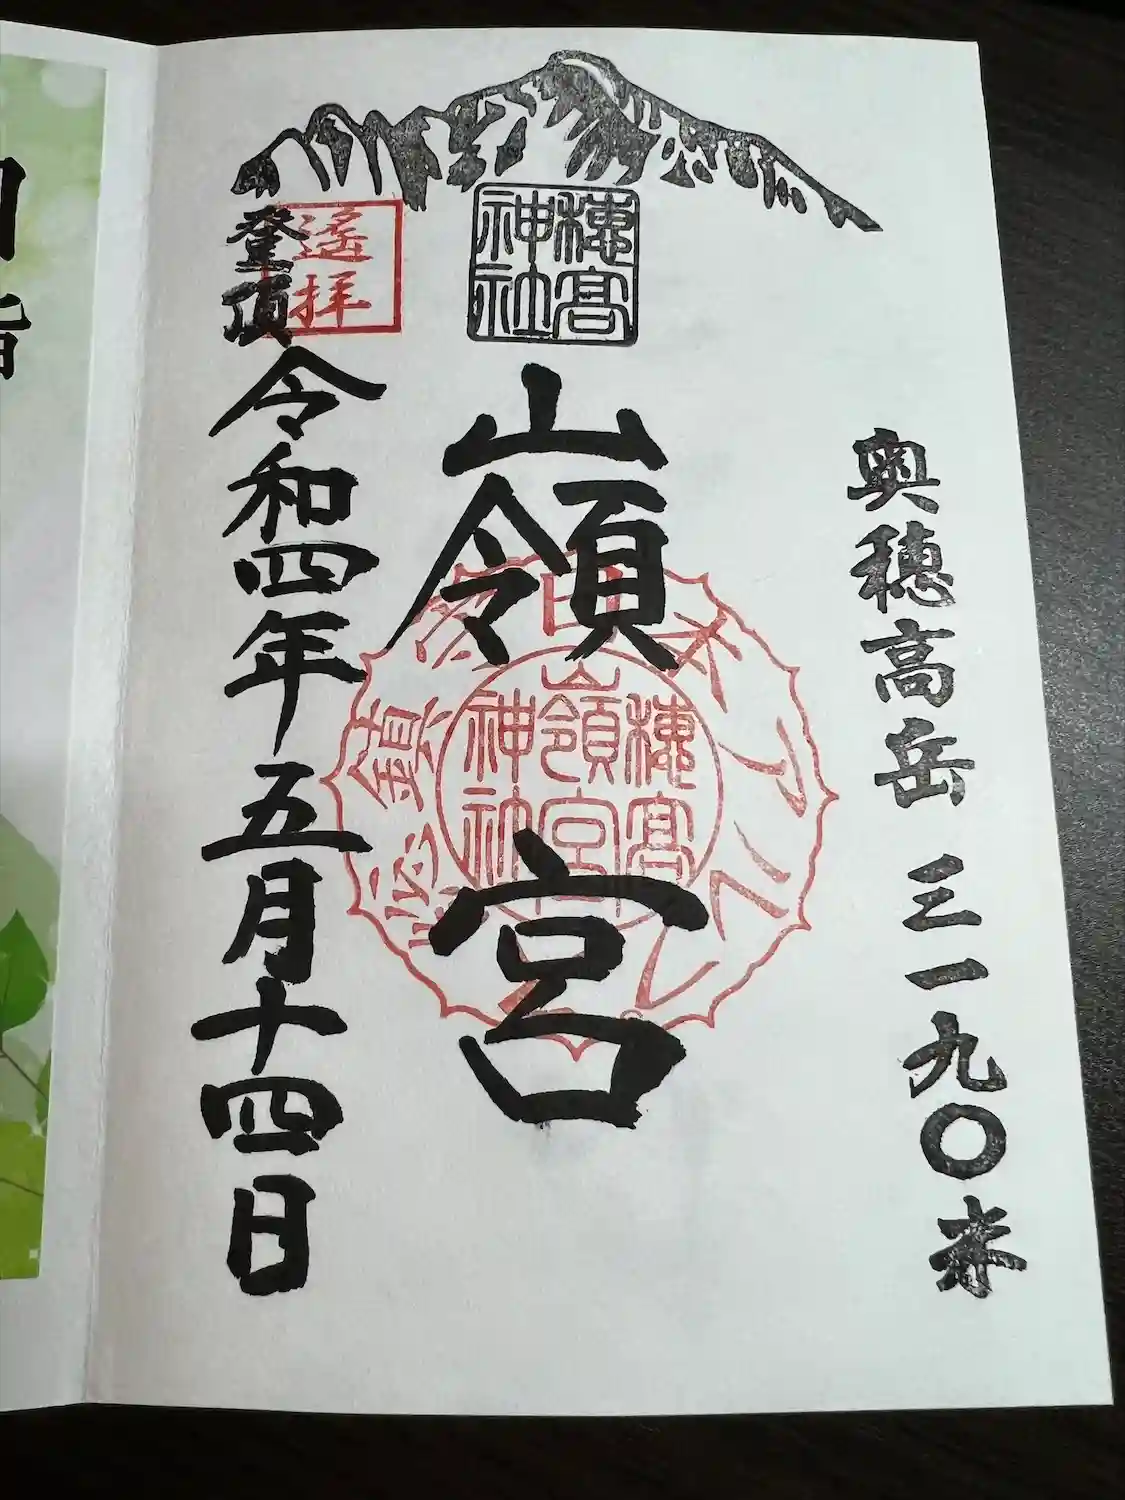 奥穂高岳 三一九〇米
穂高
神社
嶺宮
穂高
嶺宮
神社
日本アルプス総鎮守
遙拝
登頂
令和四年五月十四日